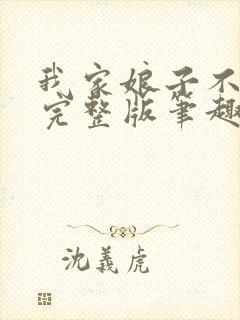 我家娘子不
完整版筆趣
沈義虎